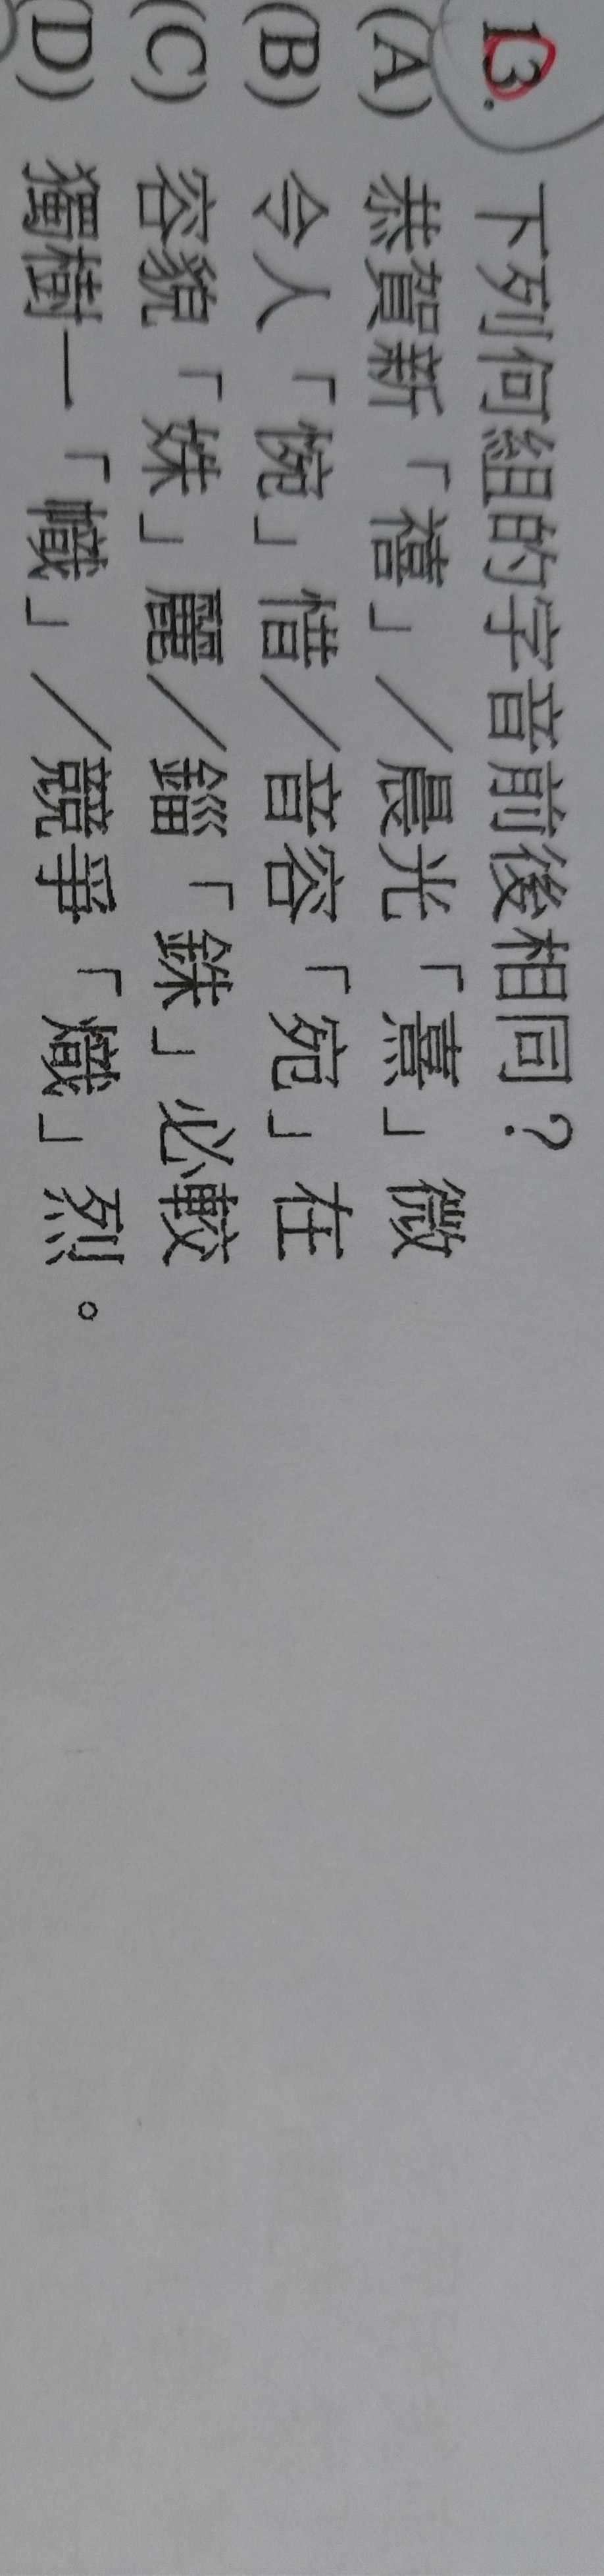 13. 下列何組的字音前後相同？
(A) 恭賀新「禧」／晨光「熹」微
(B) 令人「惋」惜／音容「宛」在
(C) 容貌「姝」麗／錙「銖」必較
(D) 獨樹一「幟」／競爭「熾」烈。